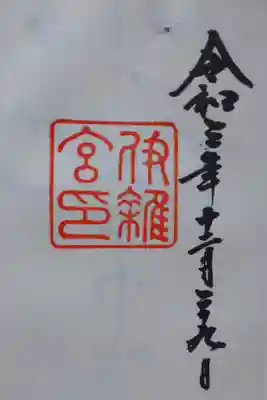 令和三年十二月二十九日
伊雜
宮印